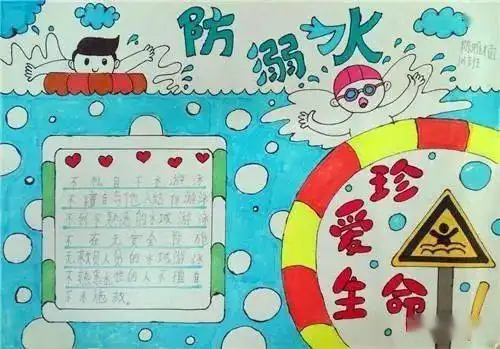 防溺水
不私自下水游泳
不擅自与他人结伴游泳
不到不熟悉的水域游泳
不在无安全设施
无救员人员的水域游泳
不熟悉水性的人不擅自
下水施救。
珍爱生命!